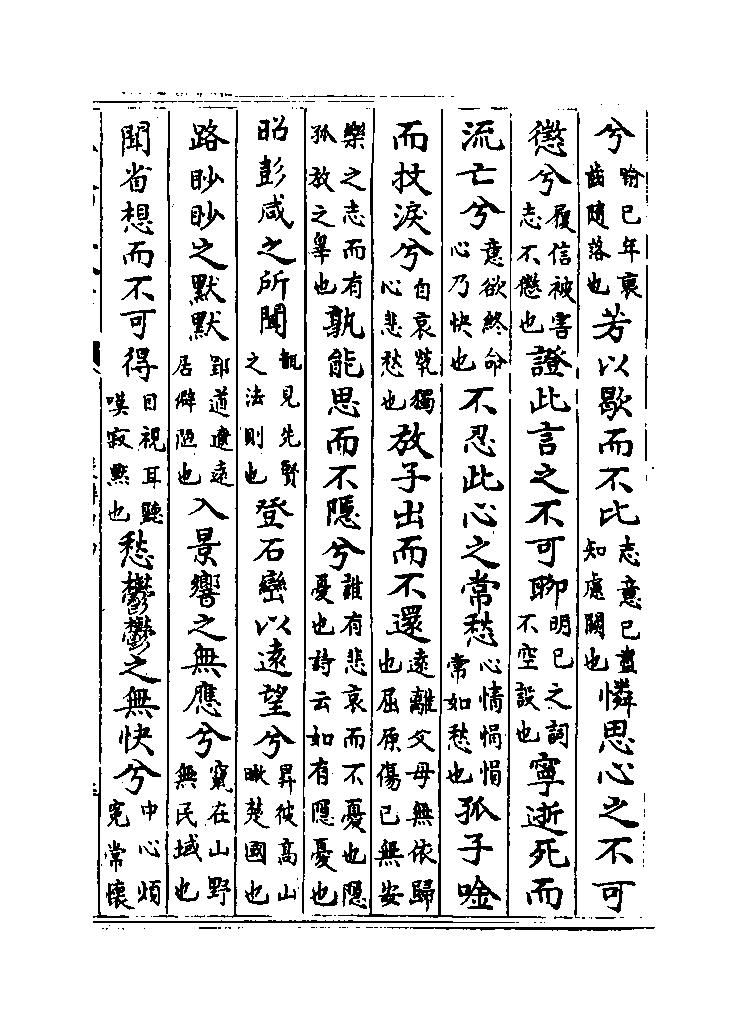 兮喻已年衰齒隨落也芳以歇而不比志意已盡知慮闕也憐思心之不可
懲兮履信被害志不懲也證此言之不可聊明已之詞不空設也寧逝死而
流亡兮意欲終命心乃快也不忍此心之常愁心情悁悁常如愁也孤子唫
而抆淚兮自哀煢獨心悲愁也放子出而不還遠離父母無依歸也屈原傷已無安
樂之志而有孤放之辠也孰能思而不隱兮誰有悲哀而不憂也隱憂也詩云如有隱憂也
昭彭咸之所聞覩見先賢之法則也登石巒以遠望兮昇彼高山瞰楚國也
路眇眇之默默郢道遼遠居僻陋也入景響之無應兮竄在山野無民域也
聞省想而不可得目視耳聽嘆寂默也愁鬱鬱之無快兮中心煩冤常懷